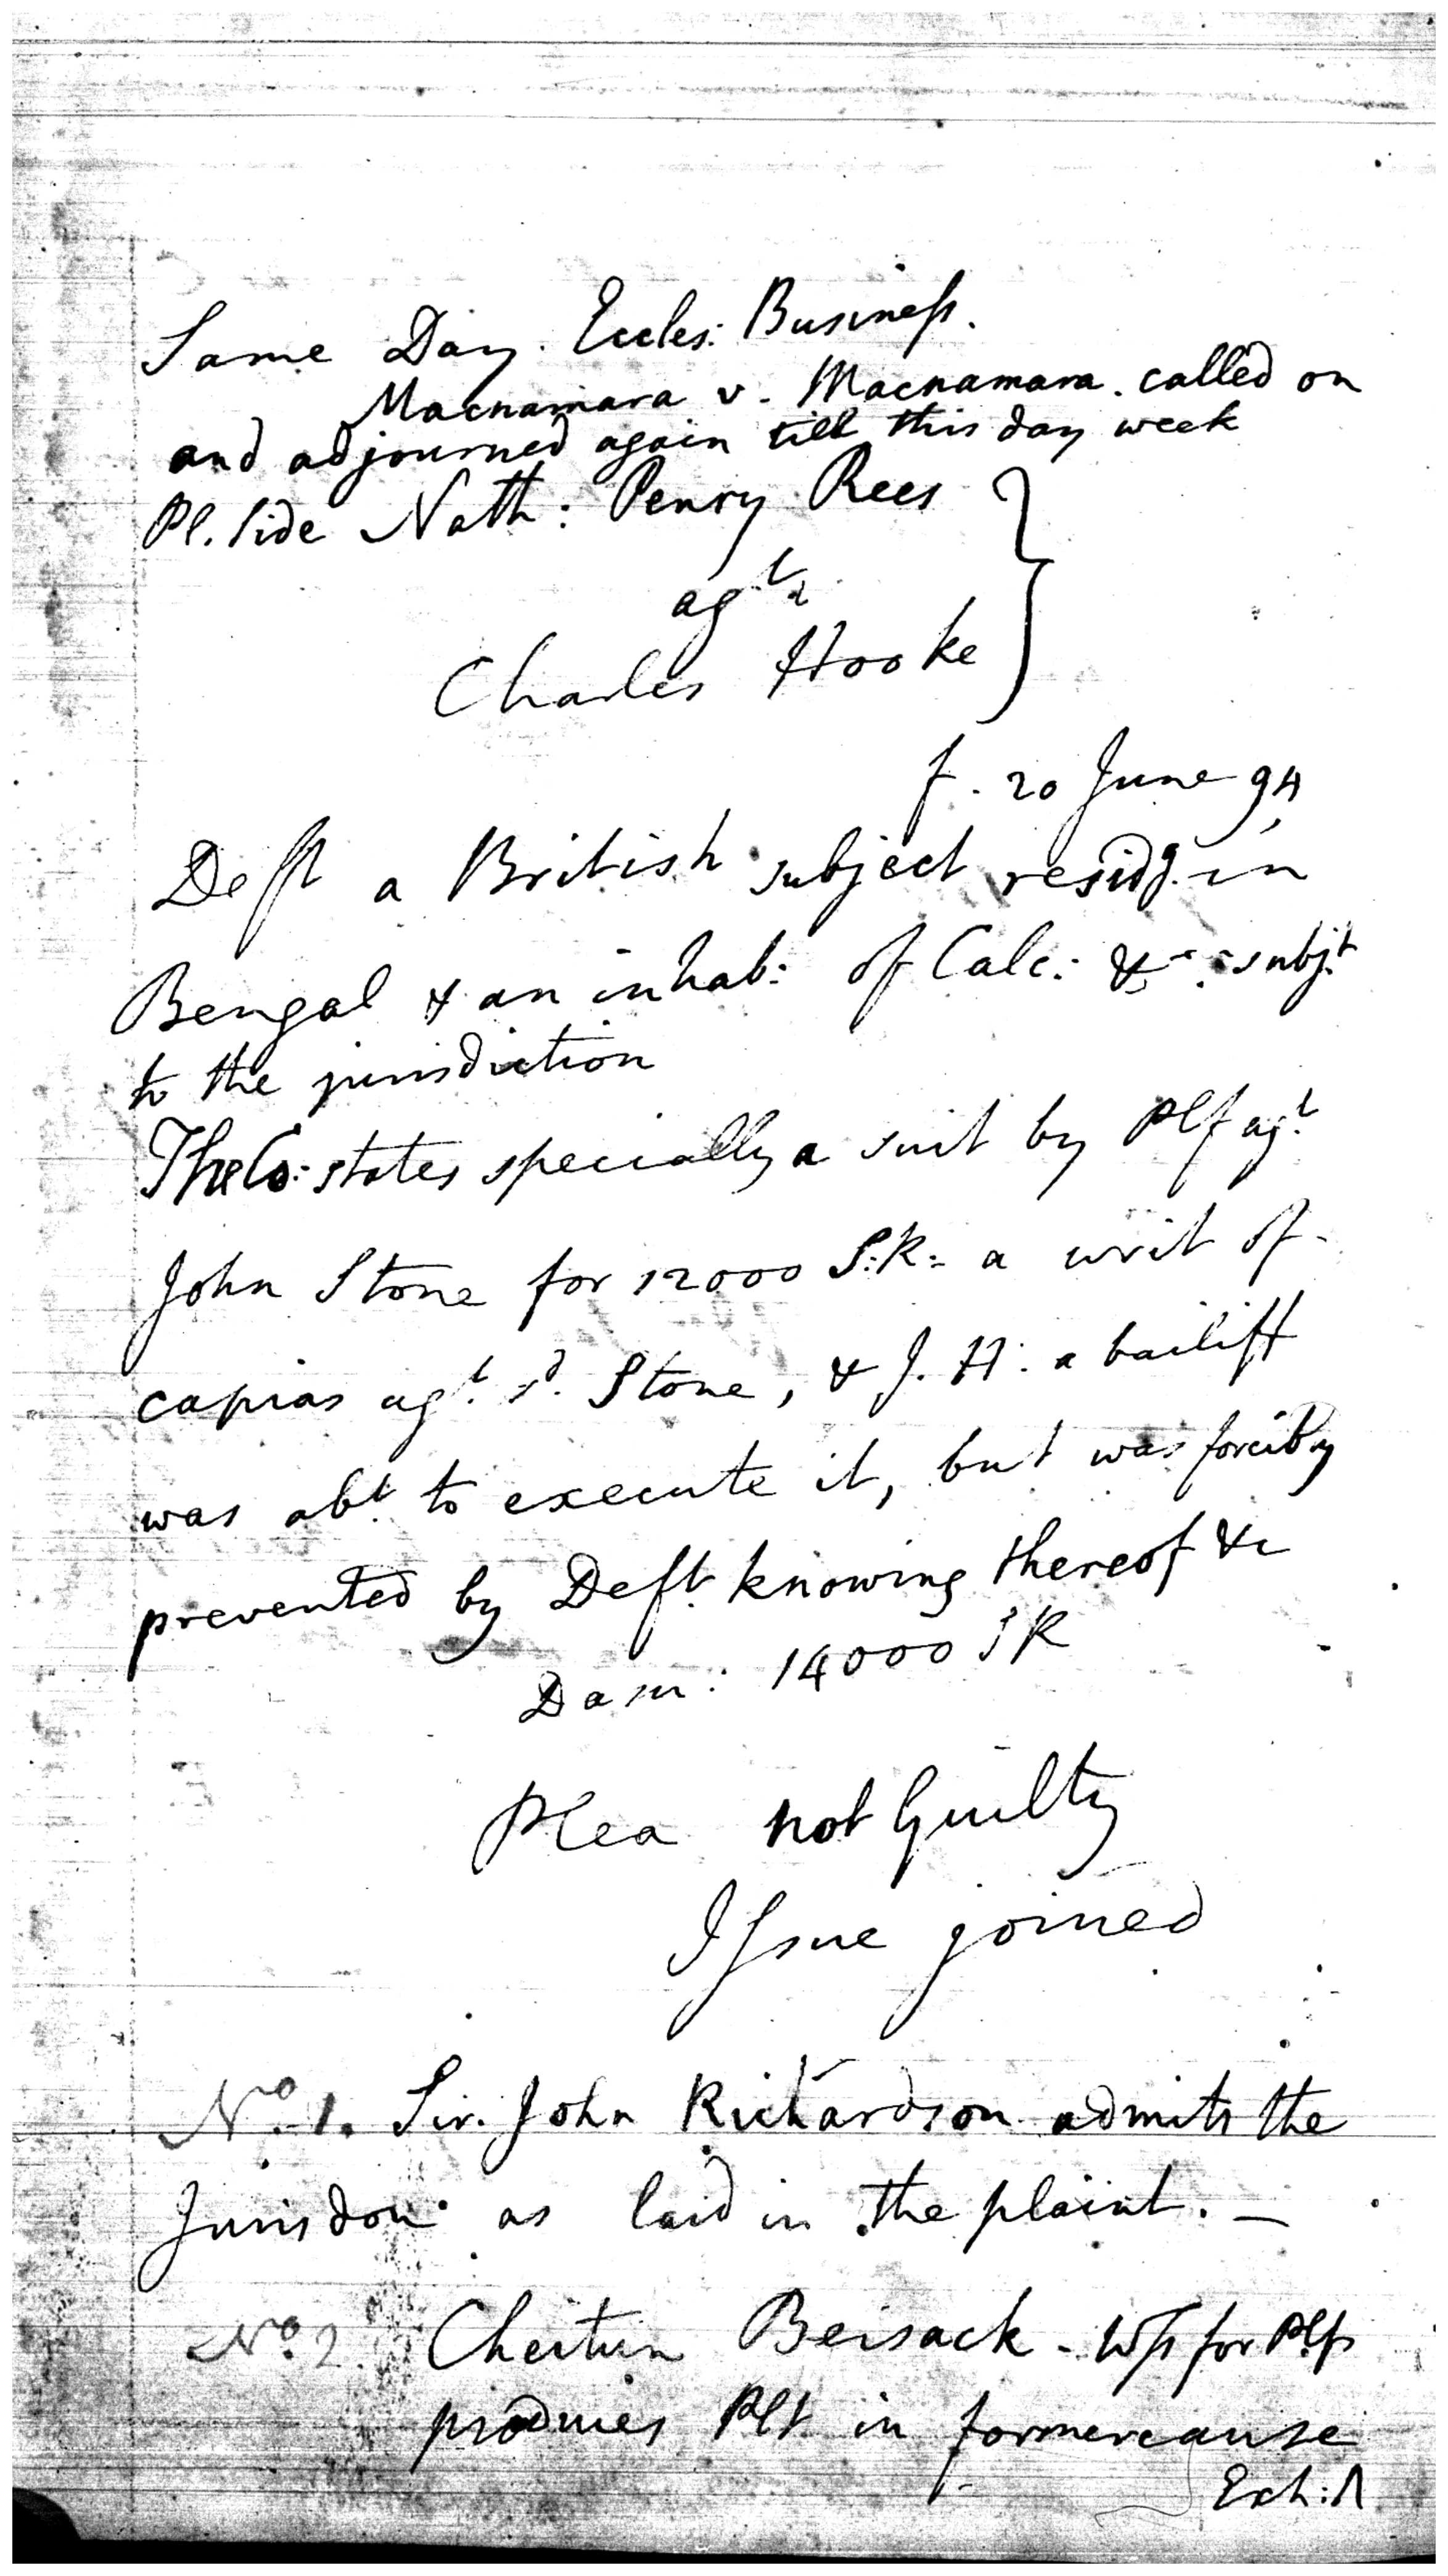 Same Day. Eccles: Business.
Macnamara v. Macnamara. called on
and adjourned again till this day week
Pl. Side Nath: Penry Rees
agt
Charles Hooke
f. 20 June 94
Deft a British subject residg. in
Bengal & an inhab: of Calc: & subjt
to the jurisdiction
The Co: states specially a suit by Plf agt
John Stone for 12000 S:R: a writ of
capias agt. sd. Stone, & J. H: a bailiff
was abt. to execute it, but was forcibly
prevented by Deft. knowing thereof &c
Dam: 14000 SR
Plea not Guilty
Issue joined
No. 1. Sir. John Richardson admits the
Jurisdon as laid in the plaint. —
No. 2. Cheitun Beisack - Wss for Plf
produces Plt in former cause
Exh: A